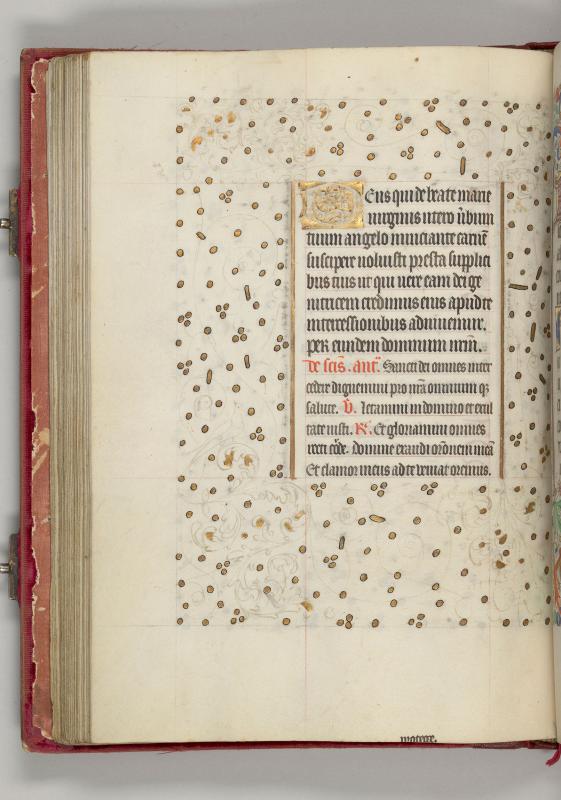 Deus qui de beate marie
uirginis utero ūbum
tuum angelo nunciante carnē
suscipere uoluisti presta supplici
bus tuis ut qui uere eam dei ge
nitricem credimus eius apud te
intercessionibus adiuuemur.
peR eundem dominum nrm̄.
De sc̄is. ant̄. Sancti dei omnes inter
cedere dignemini pro nr̄a omnium qz
salute. V̄. Letamini in domino et exul
tate iusti. R̄. Et gloriamini omnes
recti cōde. Domine exaudi orōnem meā
Et clamor meus ad te ueniat oremus.